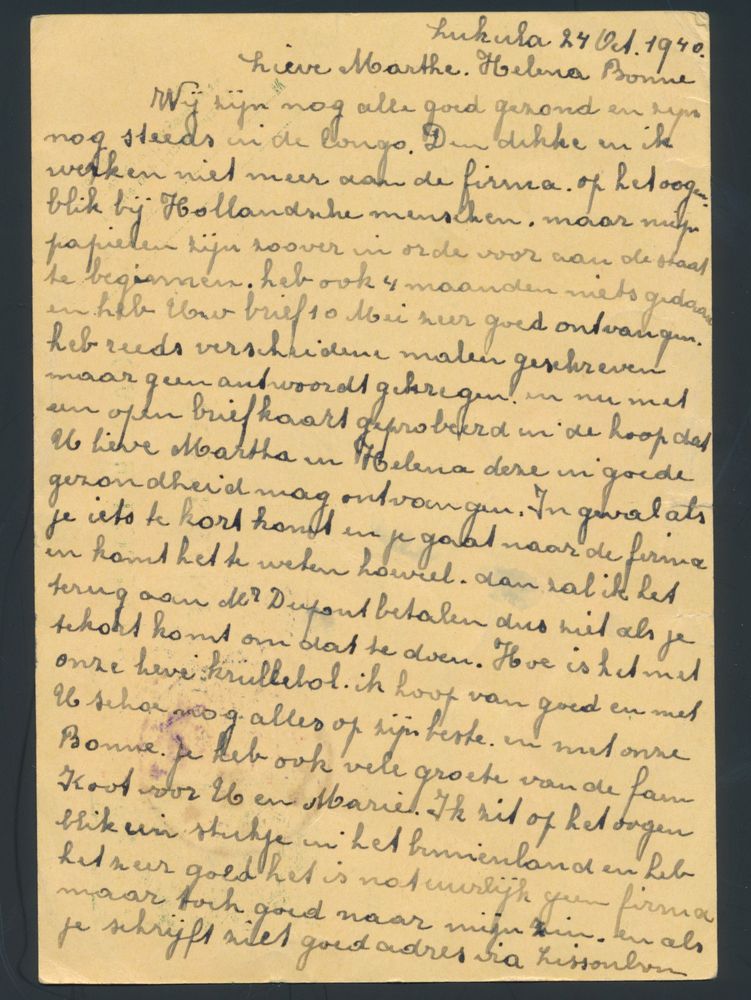 Lukula 24 Oct. 1940.
Lieve Marthe. Helena Bonne
Wij zijn nog alle goed gezond en zijn
nog steeds in de Congo. Den dikke en ik
werken niet meer aan de firma. op het oogen-
blik bij Hollandsche menschen. maar mijn
papieren zijn zoover in orde voor aan de staat
te beginnen. heb ook 4 maanden niets gedaan
en heb Uw brief 10 Mei zeer goed ontvangen.
heb reeds verscheidene malen geschreven
maar geen antwoordt gekregen. en nu met
een open briefkaart geprobeerd in de hoop dat
U lieve Martha en Helena deze in goede
gezondheid mag ontvangen. In geval als
je iets te kort komt en je gaat naar de firma
en komt het te weten hoeveel. dan zal ik het
terug aan Mr Dupont betalen dus ziet als je
tekort komt om dat te doen. Hoe is het met
onze lieve krullebol. ik hoop van goed en met
U schat nog alles op zijn beste. en met onze
Bonne. Je heb ook vele groete van de fam
Koot voor U en Marie. Ik zit op het oogen
blik een stukje in het binnenland en heb
het zeer goed het is natuurlijk geen firma
maar toch goed naar mijn zin. en als
je schrijft ziet goed adres via Lissonbon